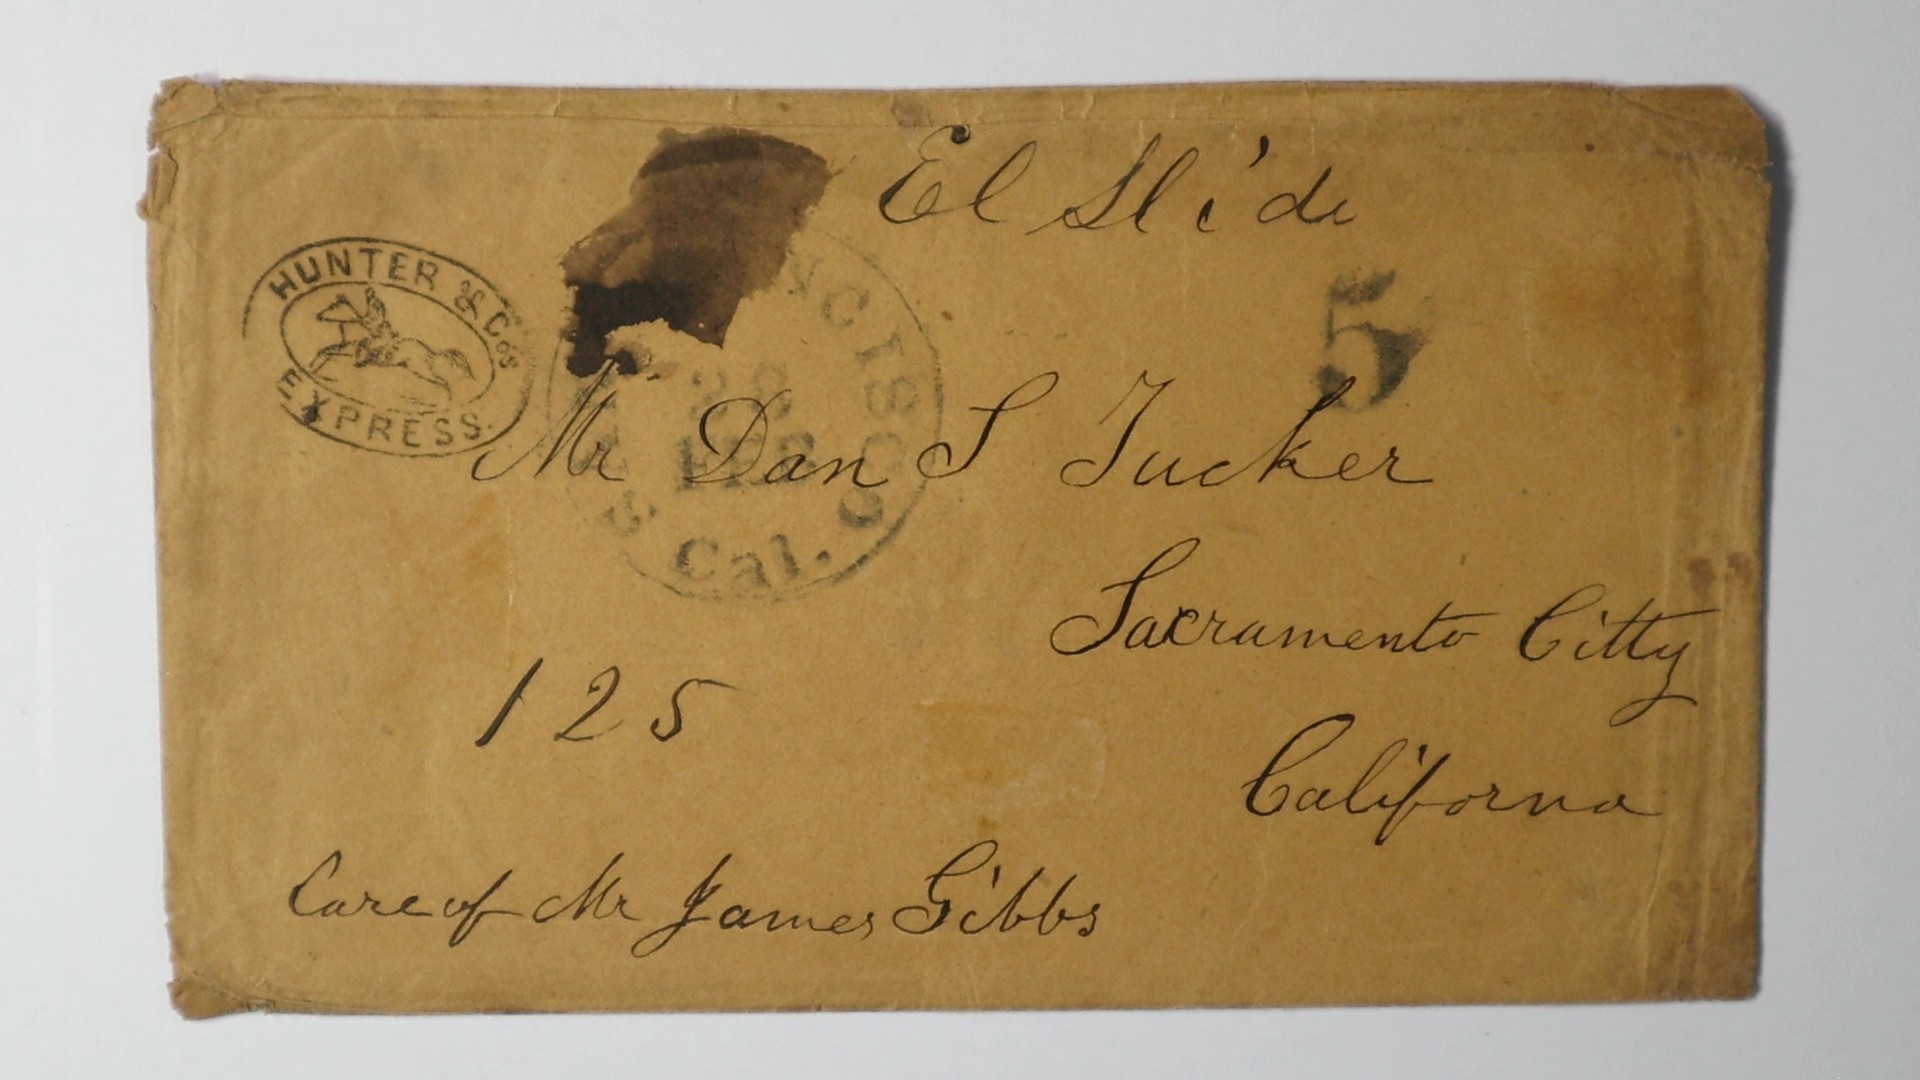 El Slide
HUNTER & Co's
EXPRESS.
5
NCISCO
FEB
Cal.
Mr Dan S Tucker
Sacramento Citty
Californa
125
Care of Mr James Gibbs